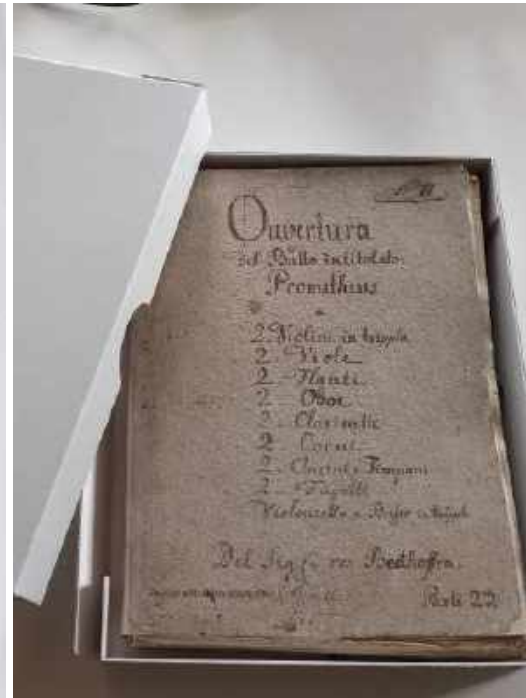 Ouvertura
del Ballo intitolato
Prometheus
2. Violini in
2. Viole
2. Flauti
2. Oboe
2. Clarinetti
2. Corni
2. Clarini e Timpani
2. Fagotti
Violoncello e Basso
Del Sig: van Beethoffen.
Parti 22